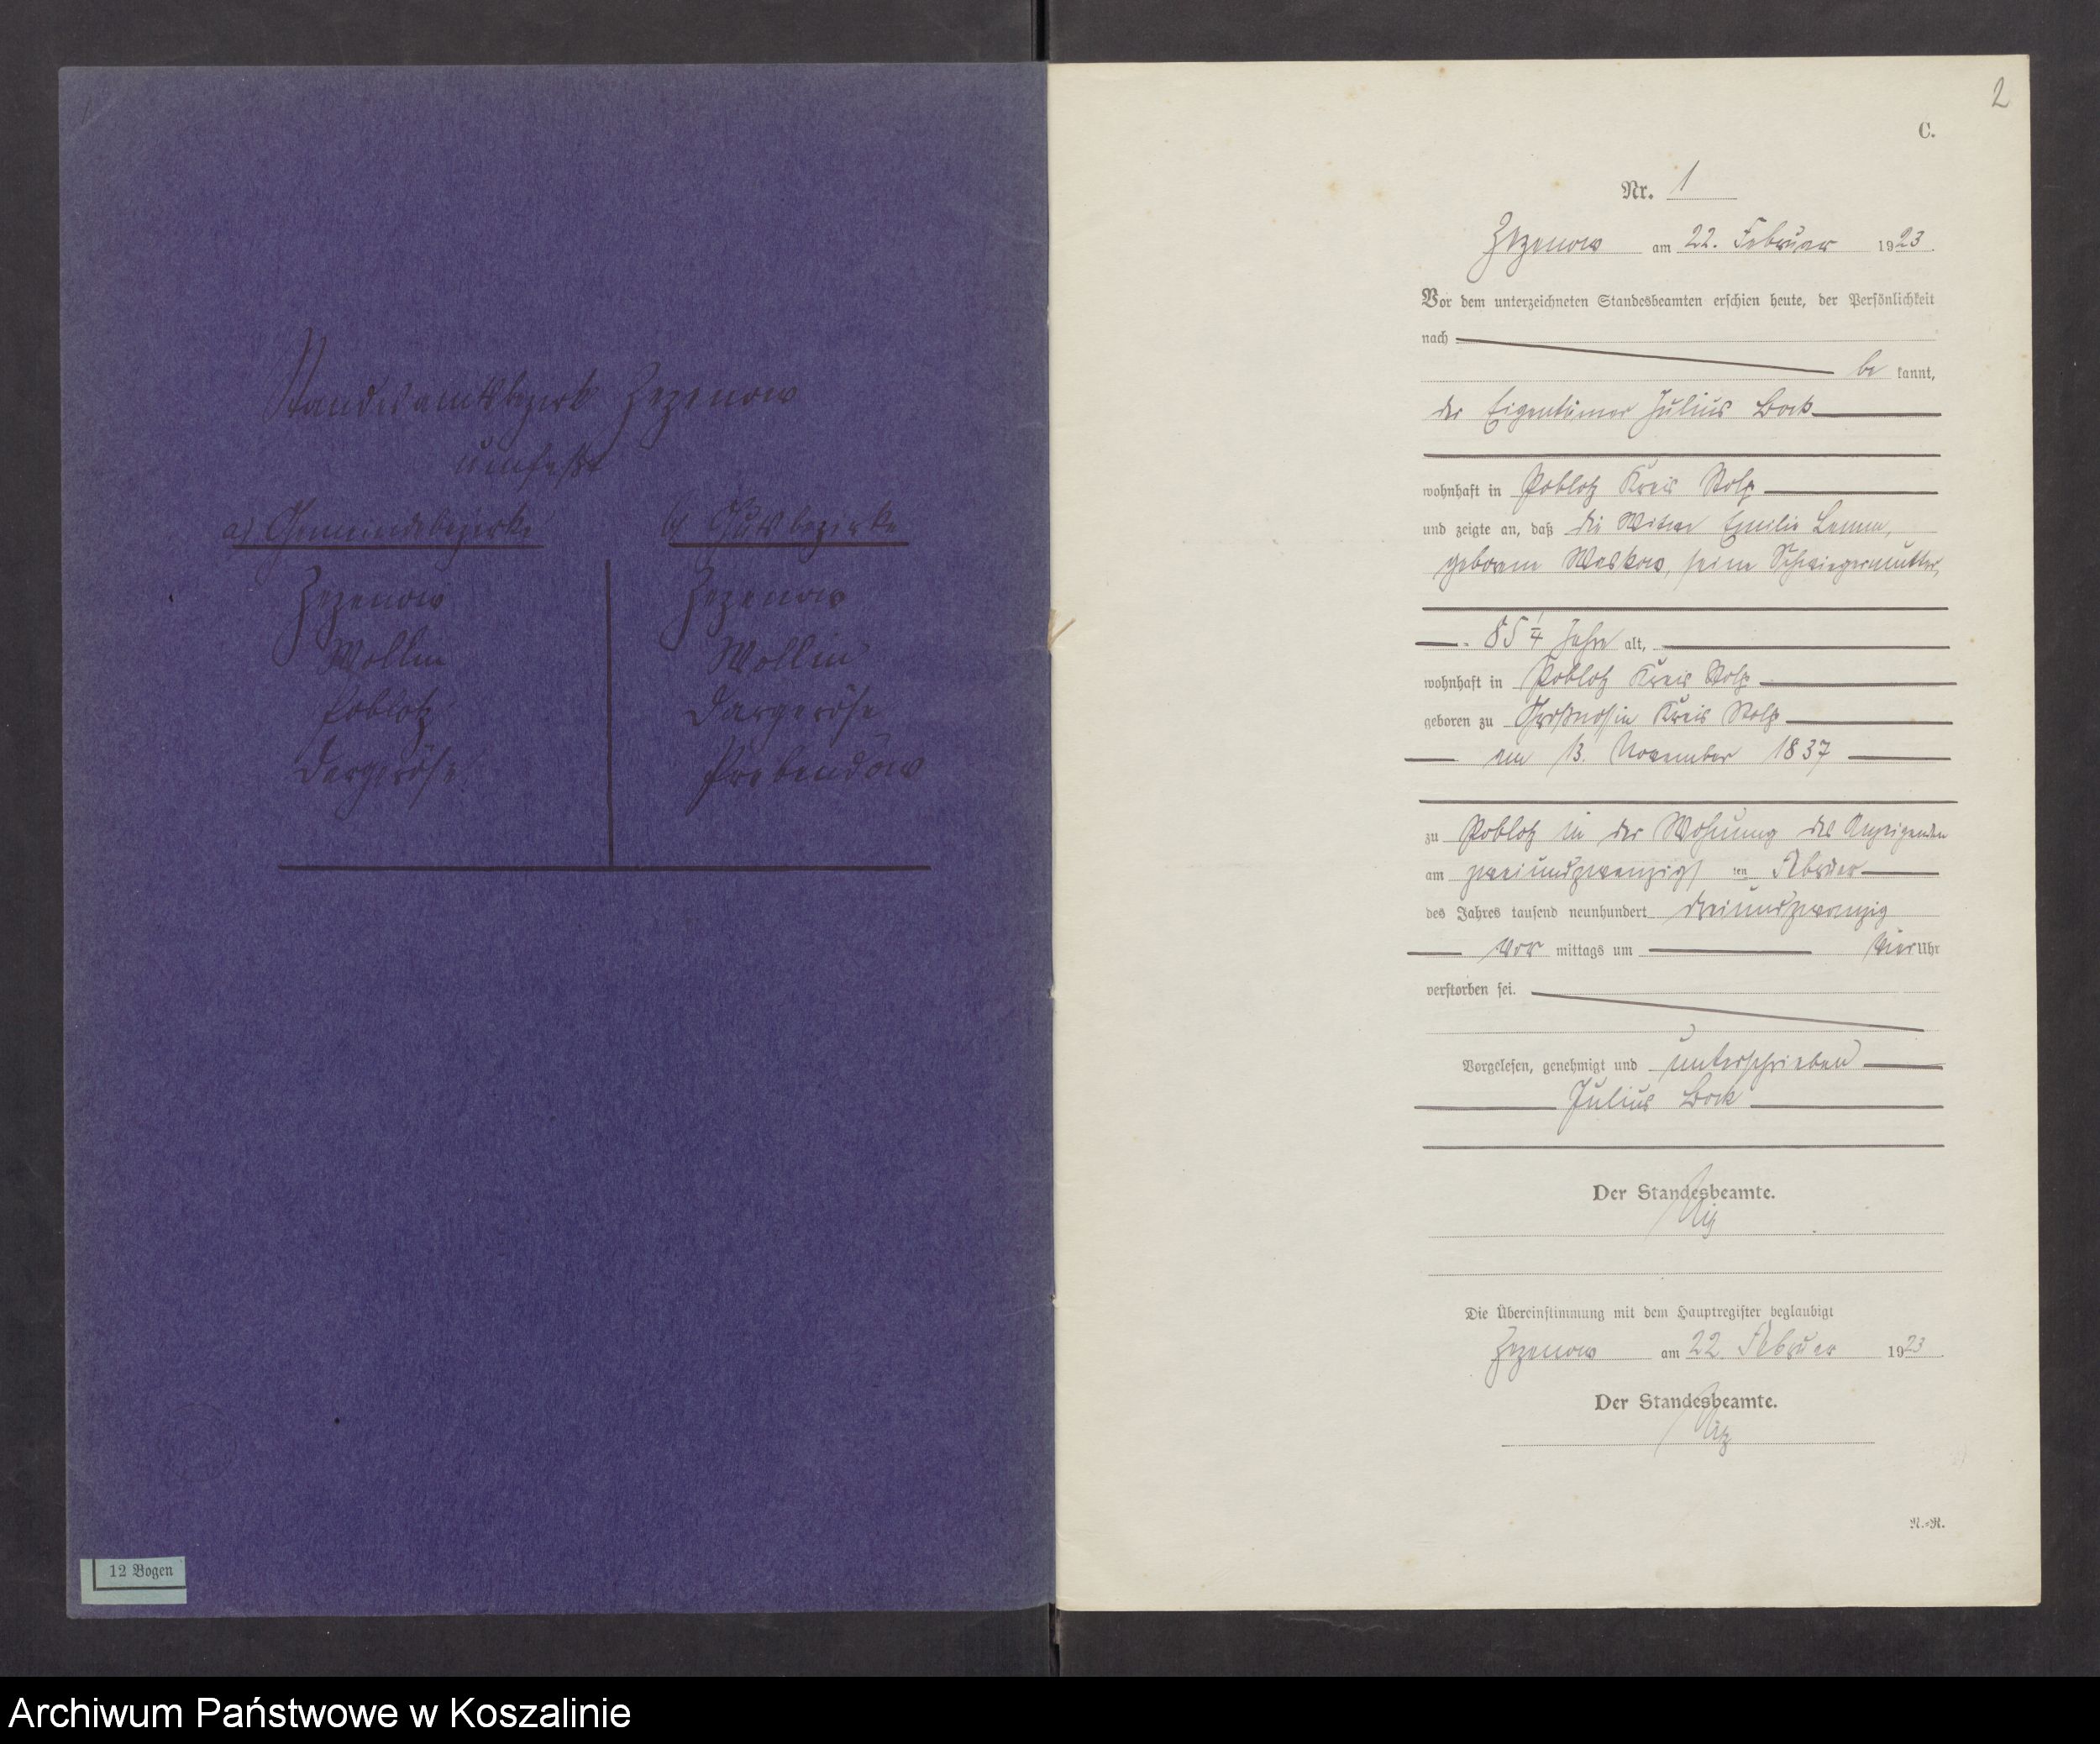 Standesamtsbezirk Zezenow
umfaßt
a) Gemeindebezirke
b) Gutsbezirke
Zezenow
Zezenow
Wollin
Wollin
Poblotz
Dargeröse
Dargeröse
Prebendow
12 Bogen
2
C.
Nr. 1
Zezenow am 22. Februar 1923.
Vor dem unterzeichneten Standesbeamten erschien heute, der Persönlichkeit
nach
be kannt,
der Eigentümer Julius Bock
wohnhaft in Poblotz Kreis Stolp
und zeigte an, daß die Witwe Emilie
geborene Waskow, seine Schwiegermutter,
85 1/4 Jahre alt,
wohnhaft in Poblotz Kreis Stolp
geboren zu Großnossin Kreis Stolp
am 13. November 1837
zu Poblotz in der Wohnung des Anzeigenden
am zweiundzwanzigsten Februar
des Jahres tausend neunhundert dreiundzwanzig
Vor mittags um vier Uhr
verstorben sei.
Vorgelesen, genehmigt und unterschrieben
Julius Bock
Der Standesbeamte.
Die Übereinstimmung mit dem Hauptregister beglaubigt
Zezenow am 22. Februar 1923.
Der Standesbeamte.
R.-R.
Archiwum Państwowe w Koszalinie